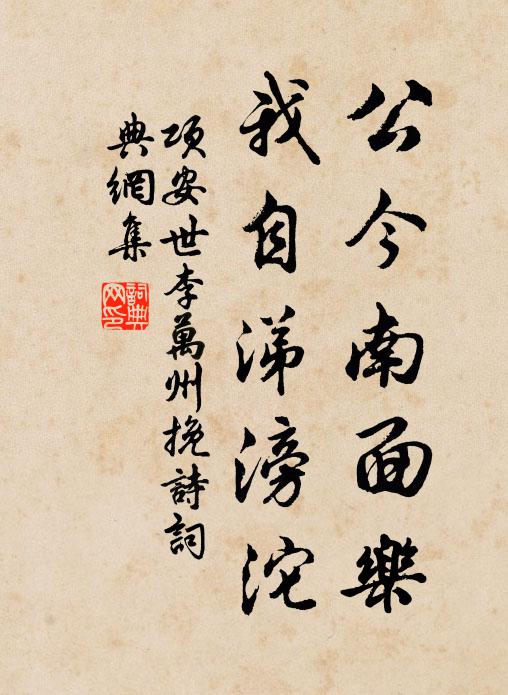 公今南面樂
我自涕滂沱
項安世李萬州挽詩詞
典網集
詞典網印